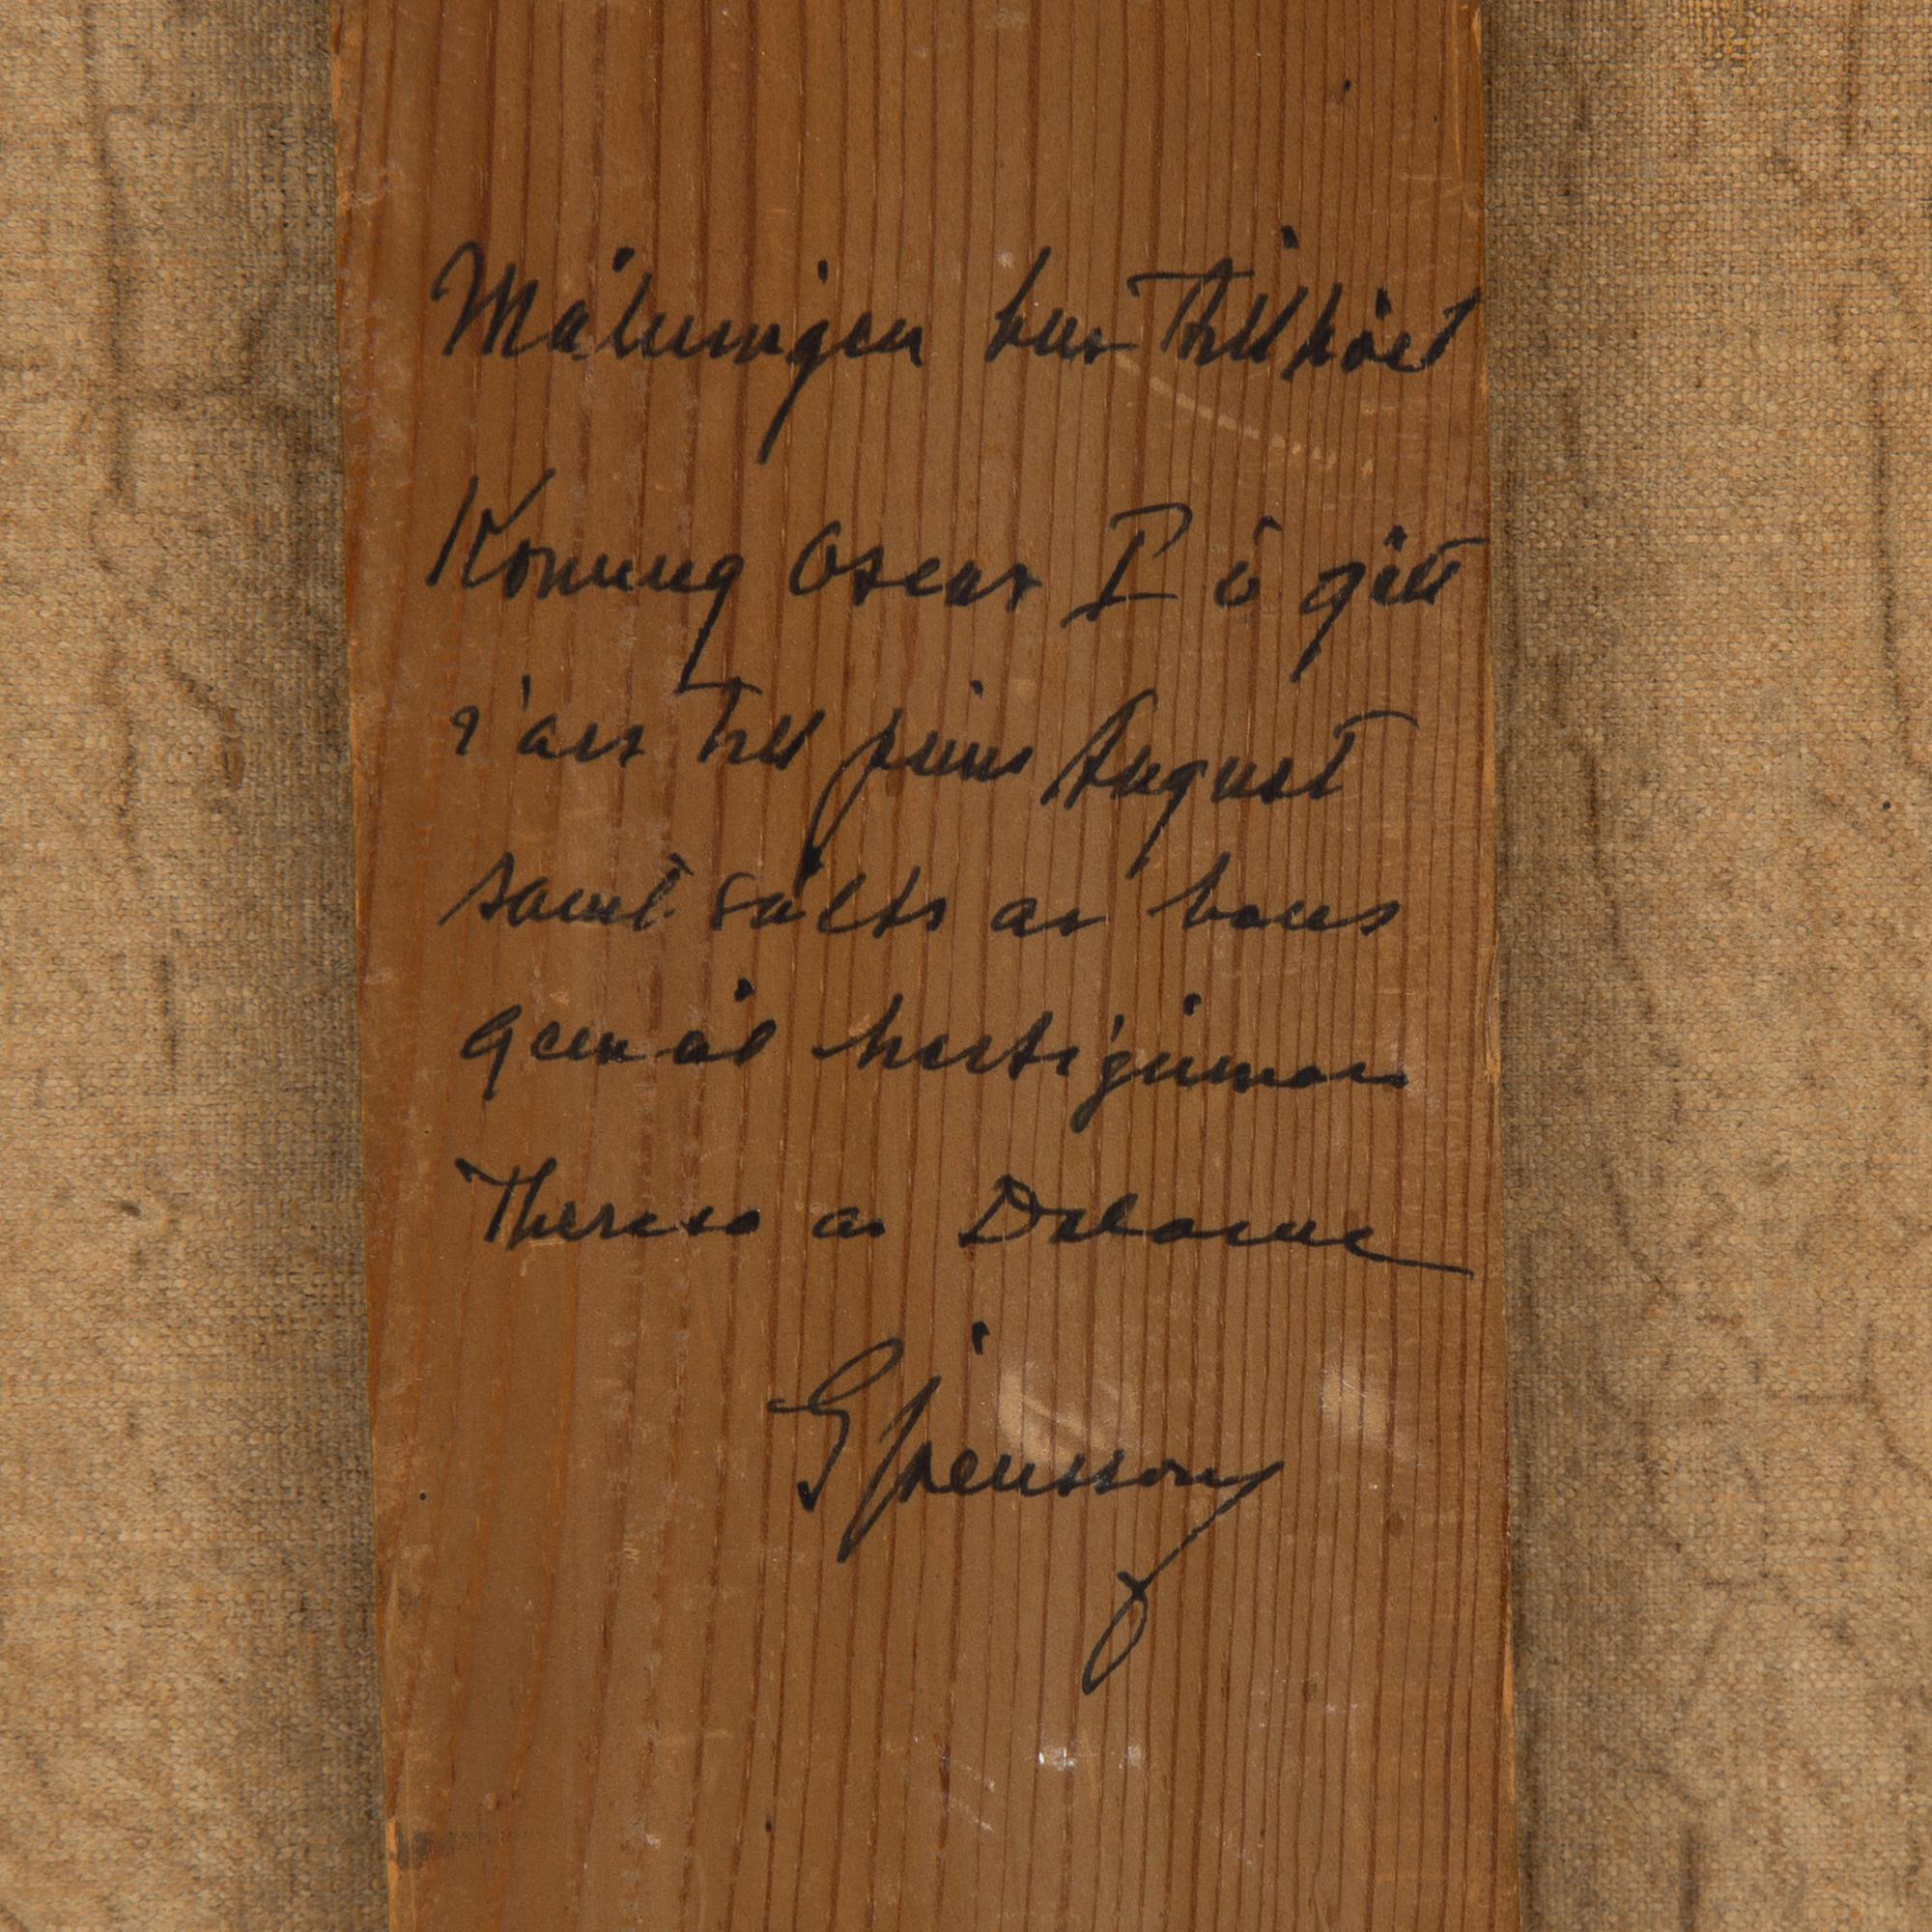 Målningen har tillhört
Konung Oscar I o gått
i arv till prins August
samt sålts av hans
gemål hertiginnan
Therese av Dalarne